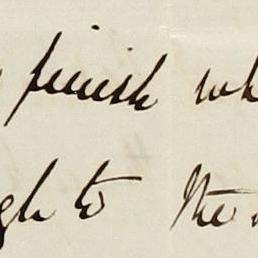 finish wh
gh to the